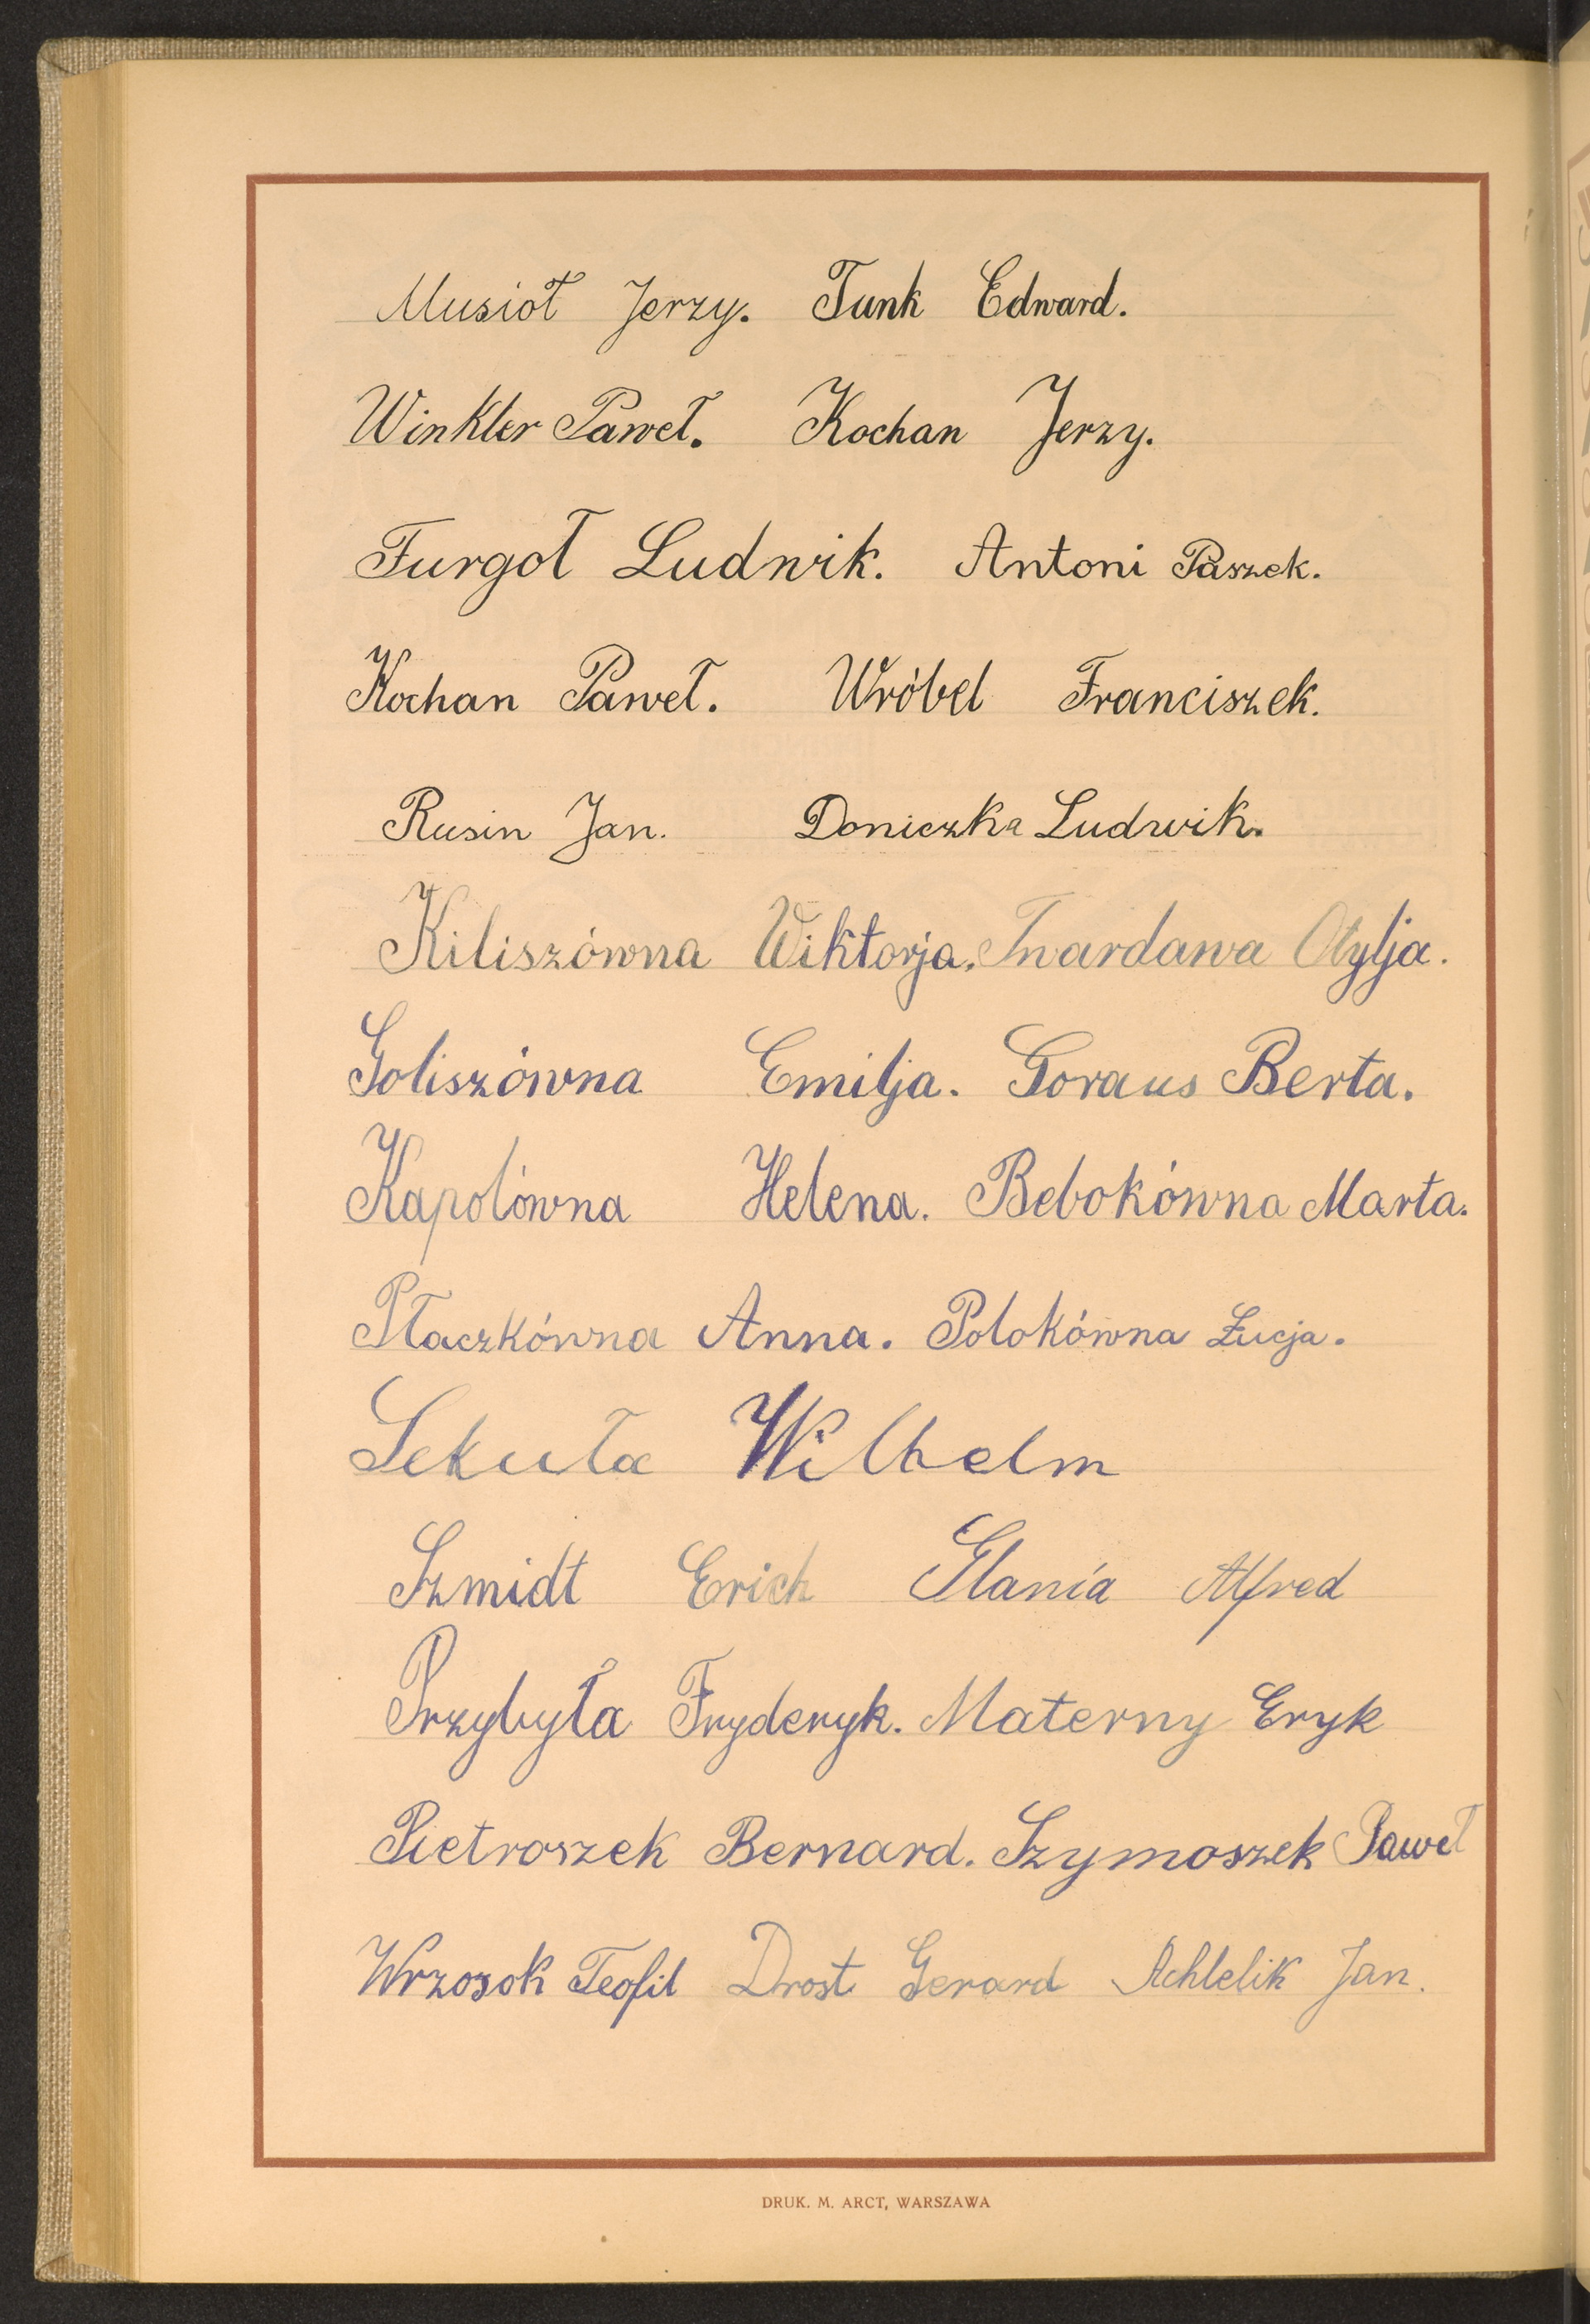 Musioł Jerzy. Tunk Edward.
Winkler Paweł. Kochan Jerzy.
Furgoł Ludwik. Antoni Paszek.
Kochan Paweł. Wróbel Franciszek.
Rusin Jan. Doniczka Ludwik.
Kiliszówna Wiktorja. Twardawa Otylja.
Goliszówna Emilja. Goraus Berta.
Kapolówna Helena. Bebokówna Marta.
Płaczkówna Anna. Polokówna Łucja.
Sekuła Wilhelm
Szmidt Erich Glania Alfred
Przybyła Fryderyk. Materny Eryk
Pietroszek Bernard. Szymoszek Paweł
Wrzosok Teofil Drost Gerard Achlelik Jan.
DRUK. M. ARCT, WARSZAWA